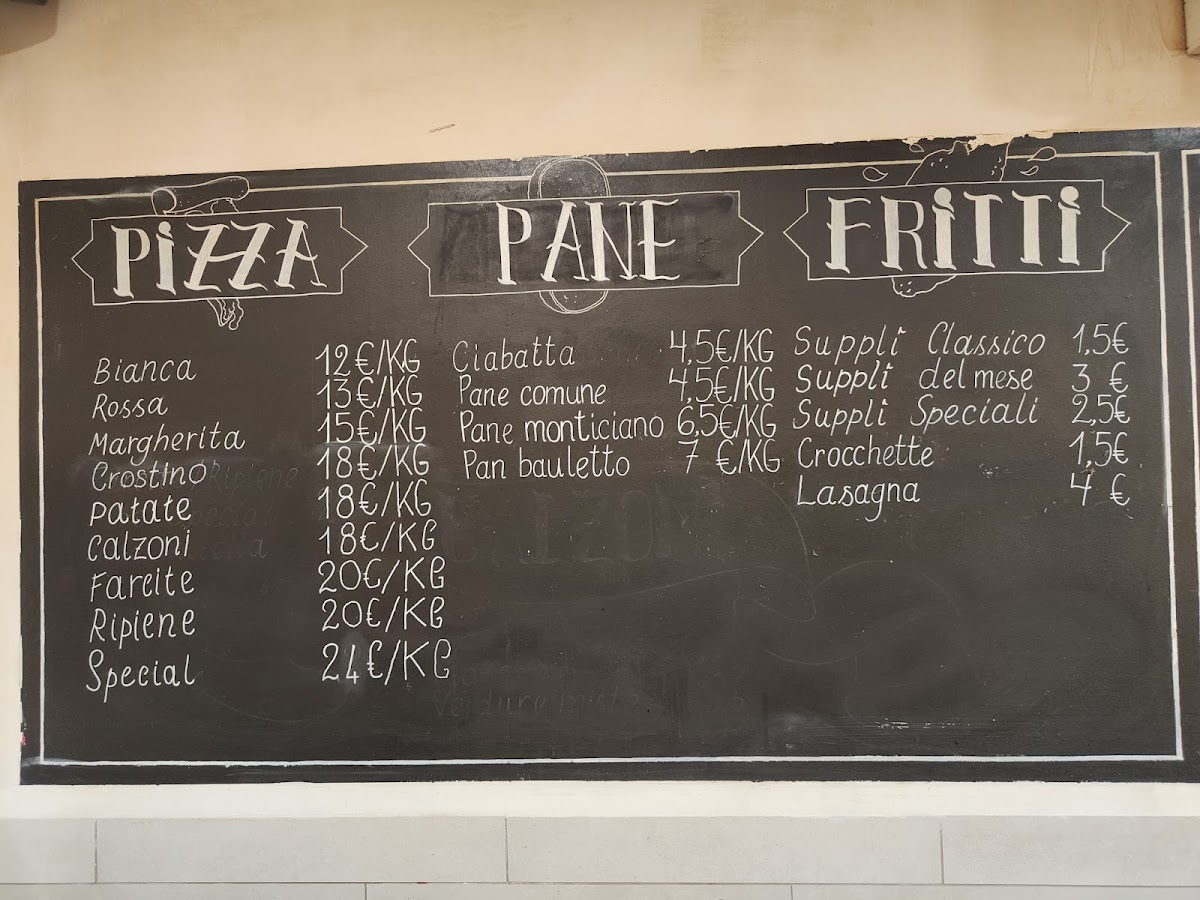 PiZZA
Bianca 12€/KG
Rossa 13€/KG
Margherita 15€/KG
Crostino 18€/KG
Patate 18€/KG
Calzoni 18€/KG
Farcite 20€/KG
Ripiene 20€/KG
Special 24€/KG
PANE
Ciabatta 4,5€/KG
Pane comune 4,5€/KG
Pane monticiano 6,5€/KG
Pan bauletto 7 €/KG
FRiTTi
Supplì Classico 1,5€
Supplì del mese 3 €
Supplì Speciali 2,5€
Crocchette 1,5€
Lasagna 4 €